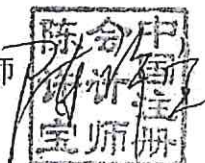 师
中国注册
会计师
陈宝